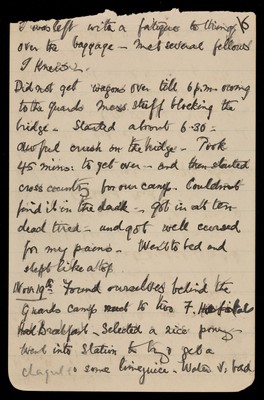 6
I was left with a fatigue to bring
over the baggage – met several fellows
I knew.
Did not get wagons over till 6 p.m. owing
to the Guards Mess staff blocking the
bridge – Started about 6.30 –
awful crush on the bridge – Took
45 mins: to get over – and then started
cross country for our camp. Could not
find it in the dark – got in at ten
dead tired – and got well cursed
for my pains – Went to bed and
slept like a top
Nov 19th Found ourselves behind the
Guards camp next to two F.
Had Breakfast – Selected a nice pony
Went into Station to try & get a
& some limejuice – Water v. bad